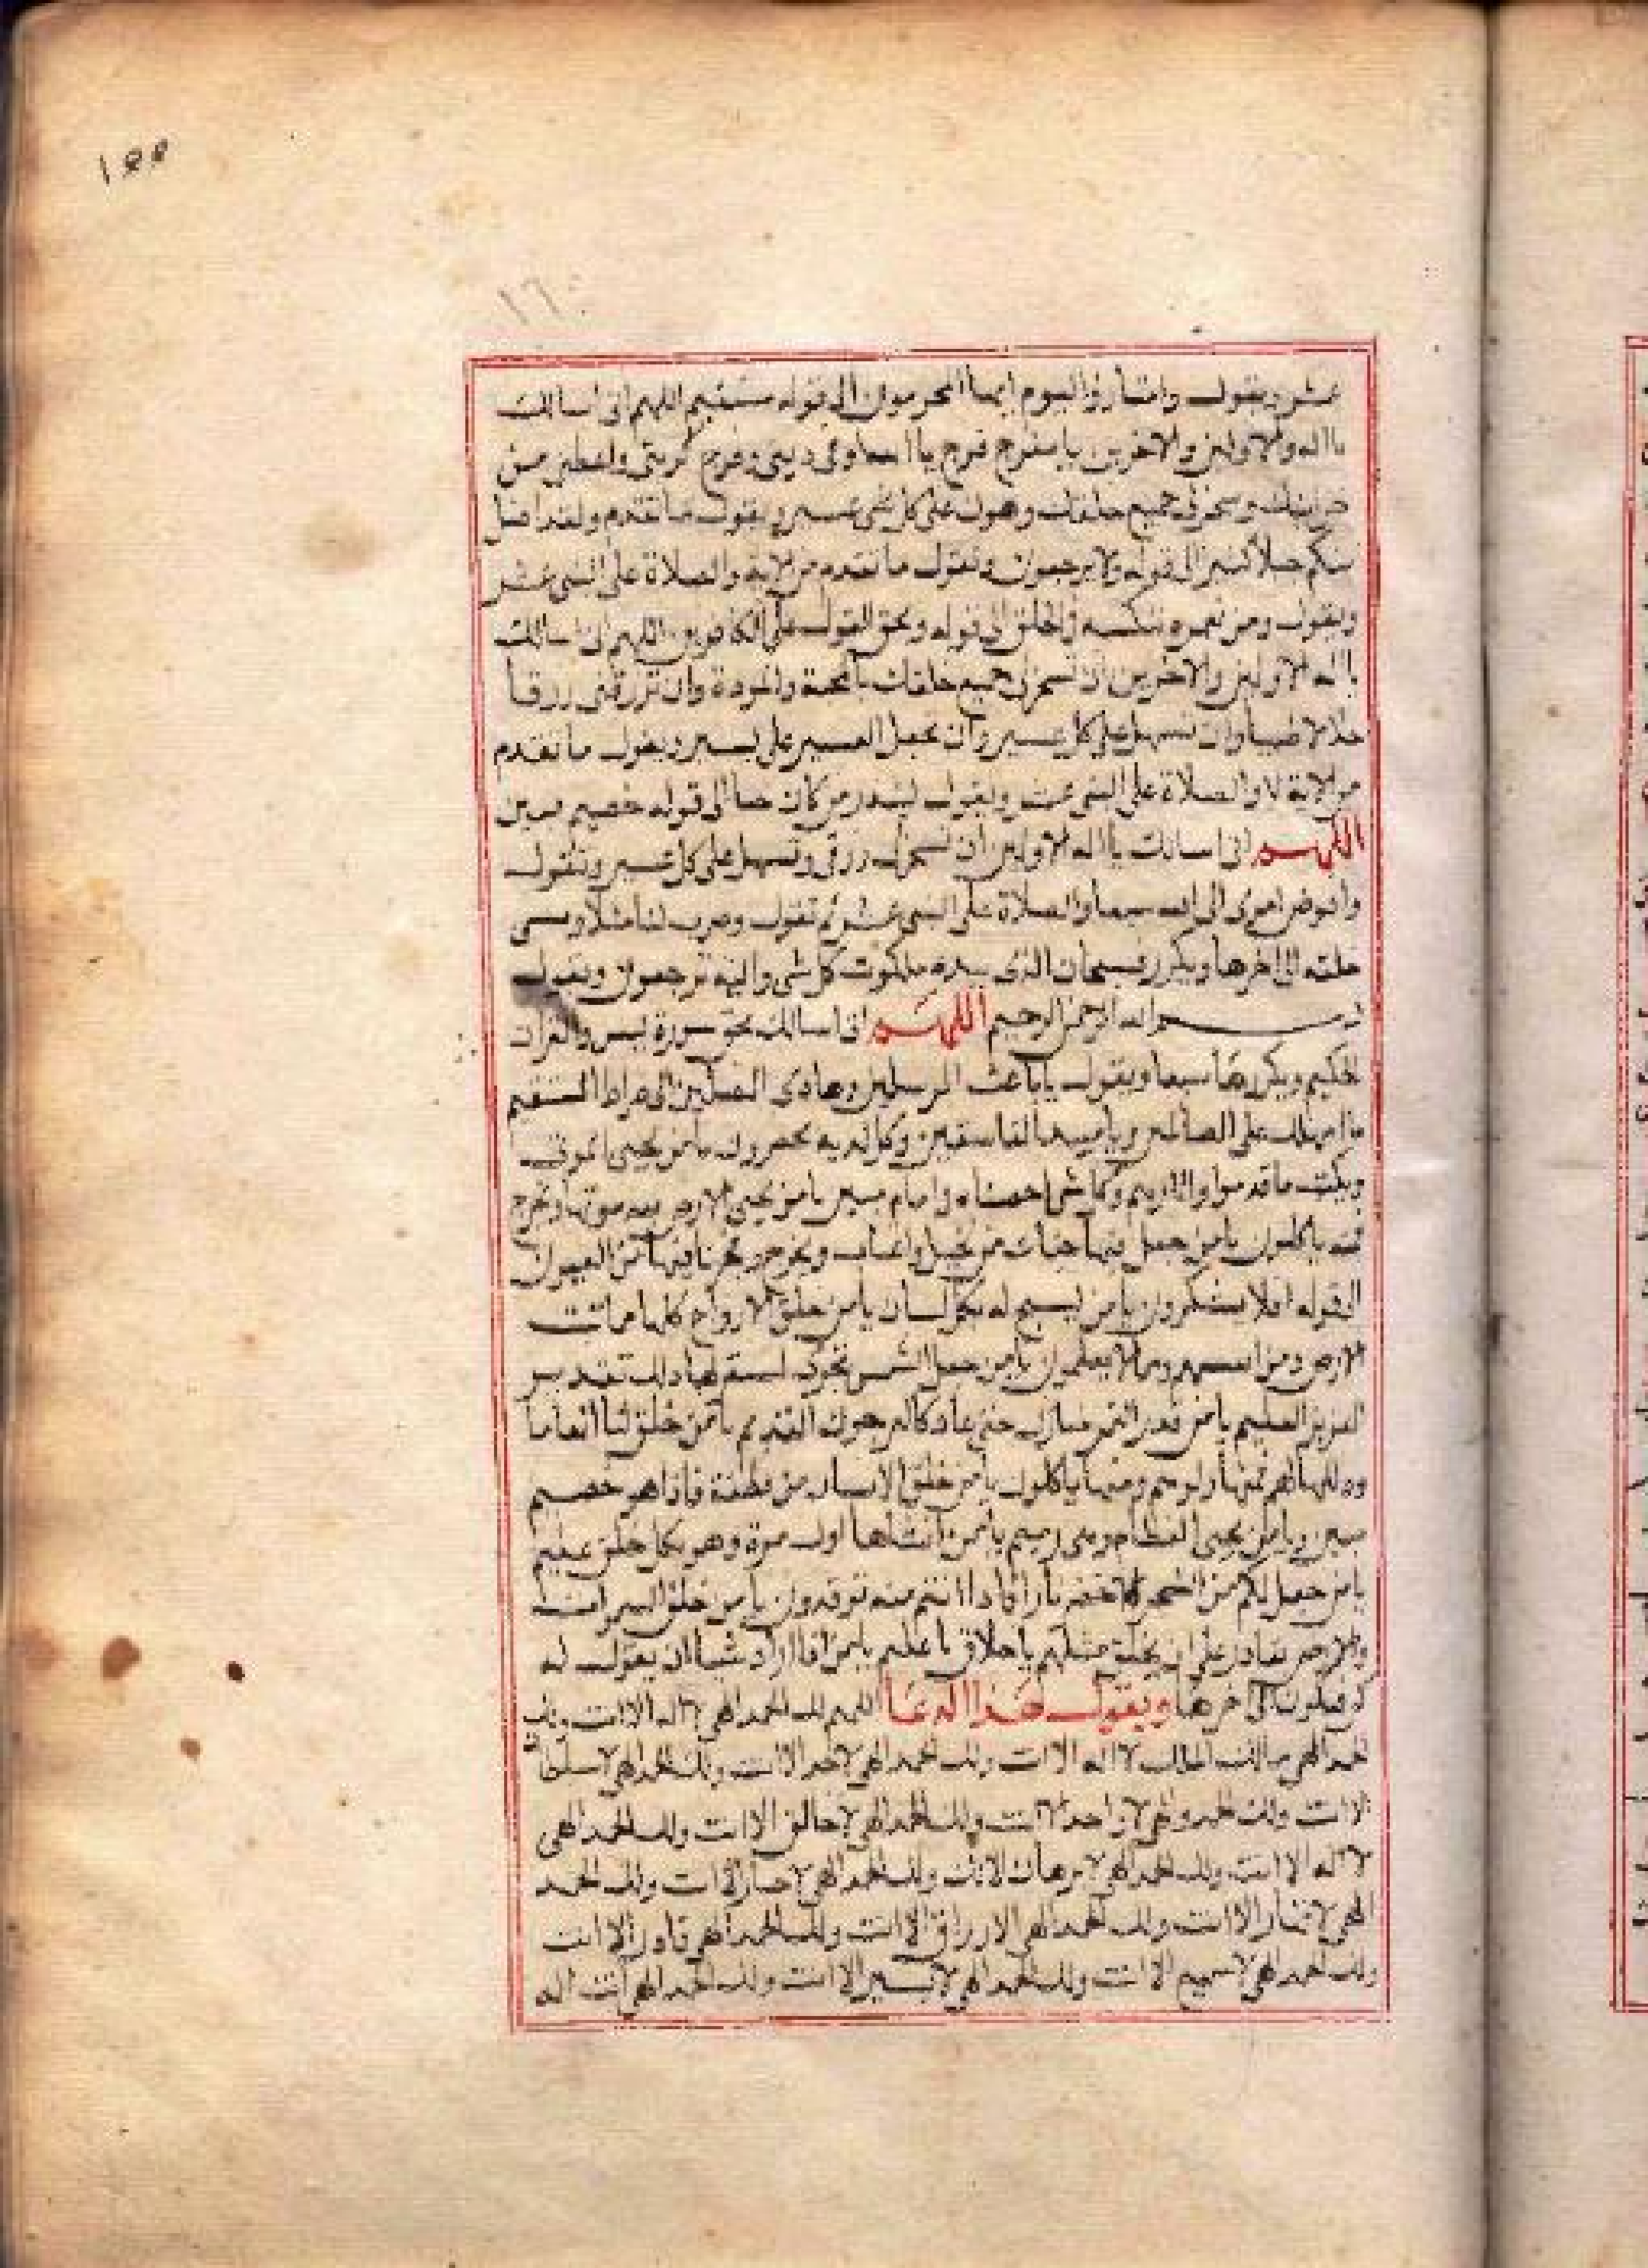 ١٥٥
١٦٠
عشر ويقول وامتازوا اليوم ايها المجرمون الى قوله مستقيم اللهم انى اسالك
يااله الاولين والاخرين يا مفرج فرج دينى وفرج كربتى واعطنى من
خزاينك وسخرلى جميع خلقك وهون على كل شى عسير ويقول ما تقدم ولقد اضل
منكم جبلا كثيرا الى قوله ولا يرجعون وتقول ما تقدم من الاية والصلاة على النبى عشر
ويقول ومن نعمره ننكسه فى الخلق الى قوله ويحق القول على الكافرين اللهم انى اسالك
يااله الاولين والاخرين ان تسخرلى جميع خلقك بالمحبة والمودة وان ترزقنى رزقا
حلالا طيبا وان تسهل على كل عسير وان تجعل العسير على يسير ويقول ما تقدم
من الاية والصلاة على النبى عشر ويقول لينذر من كان حيا الى قوله خصيم مبين
اللهم انى اسالك يااله الاولين ان تسخرلى رزقى وتسهل على كل عسير وتقول
وافوض امرى الى الله سبعا والصلاة على النبى عشر ثم تقول وضرب لنا مثلا ونسى
خلقه الى اخرها ويكرر فسبحان الذى بيده ملكوت كل شى واليه ترجعون ويقول
بسم الله الرحمن الرحيم اللهم انى اسالك بحق سورة يس والقران
الحكيم ويكررها سبعا ويقول يا باعث المرسلين وهادى المضلين الى صراط المستقيم
على الظالمين القاسقين وكل لديه محضرون يا من يحيى الموتى
ويكتب ما قدموا واثارهم وكل شى احصناه فى امام مبين يا من يحيى الارض بعد موتها وتخرج
منه ياكلون يا من جعل فيها جنات من نخيل واعناب فيها من العيون
الى قوله افلا يشكرون يا من يسبح له بكل لسان يا من خلق الازواج كلها مما تنبت
الارض ومن انفسهم ومما لا يعلمون يا من جعل الشمس تجرى لمستقر لها ذلك تقدير
العزيز العليم يا من قدر القمر منازل حتى عاد كالعرجون القديم يا من خلق لنا انعاما
وذللها لهم فمنها ركوبهم ومنها ياكلون يا من خلق الانسان من نطفة فاذا هو خصيم
مبين ويا من يحيى العظام وهى رميم يا من انشاها اول مرة وهو بكل خلق عليم
يا من جعل لكم من الشجر الاخضر نارا فاذا انتم منه توقدون يا من خلق السموات
والارض بقادر على ان يخلق مثلهم يا خلاق يا عليم يا من اذا اراد شيا ان يقول له
كن فيكون الى اخرها ويقول هذا الدعا اللهم لك الحمد الهى لا اله الا انت ولك
الحمد الهى لا اله الا انت ولك الحمد الهى لا احد الا انت ولك الحمد الهى لا سلطان
الا انت ولك الحمد الهى لا واحد الا انت ولك الحمد الهى لا خالق الا انت ولك الحمد الهى
لا اله الا انت ولك الحمد الهى لا برهان الا انت ولك الحمد الهى لا جبار الا انت ولك الحمد
الهى لا الا انت ولك الحمد الهى لا رزاق الا انت ولك الحمد الهى قادر الا انت
ولك الحمد الهى لا سميع الا انت ولك الحمد الهى لا بصير الا انت ولك الحمد الهى انت اله